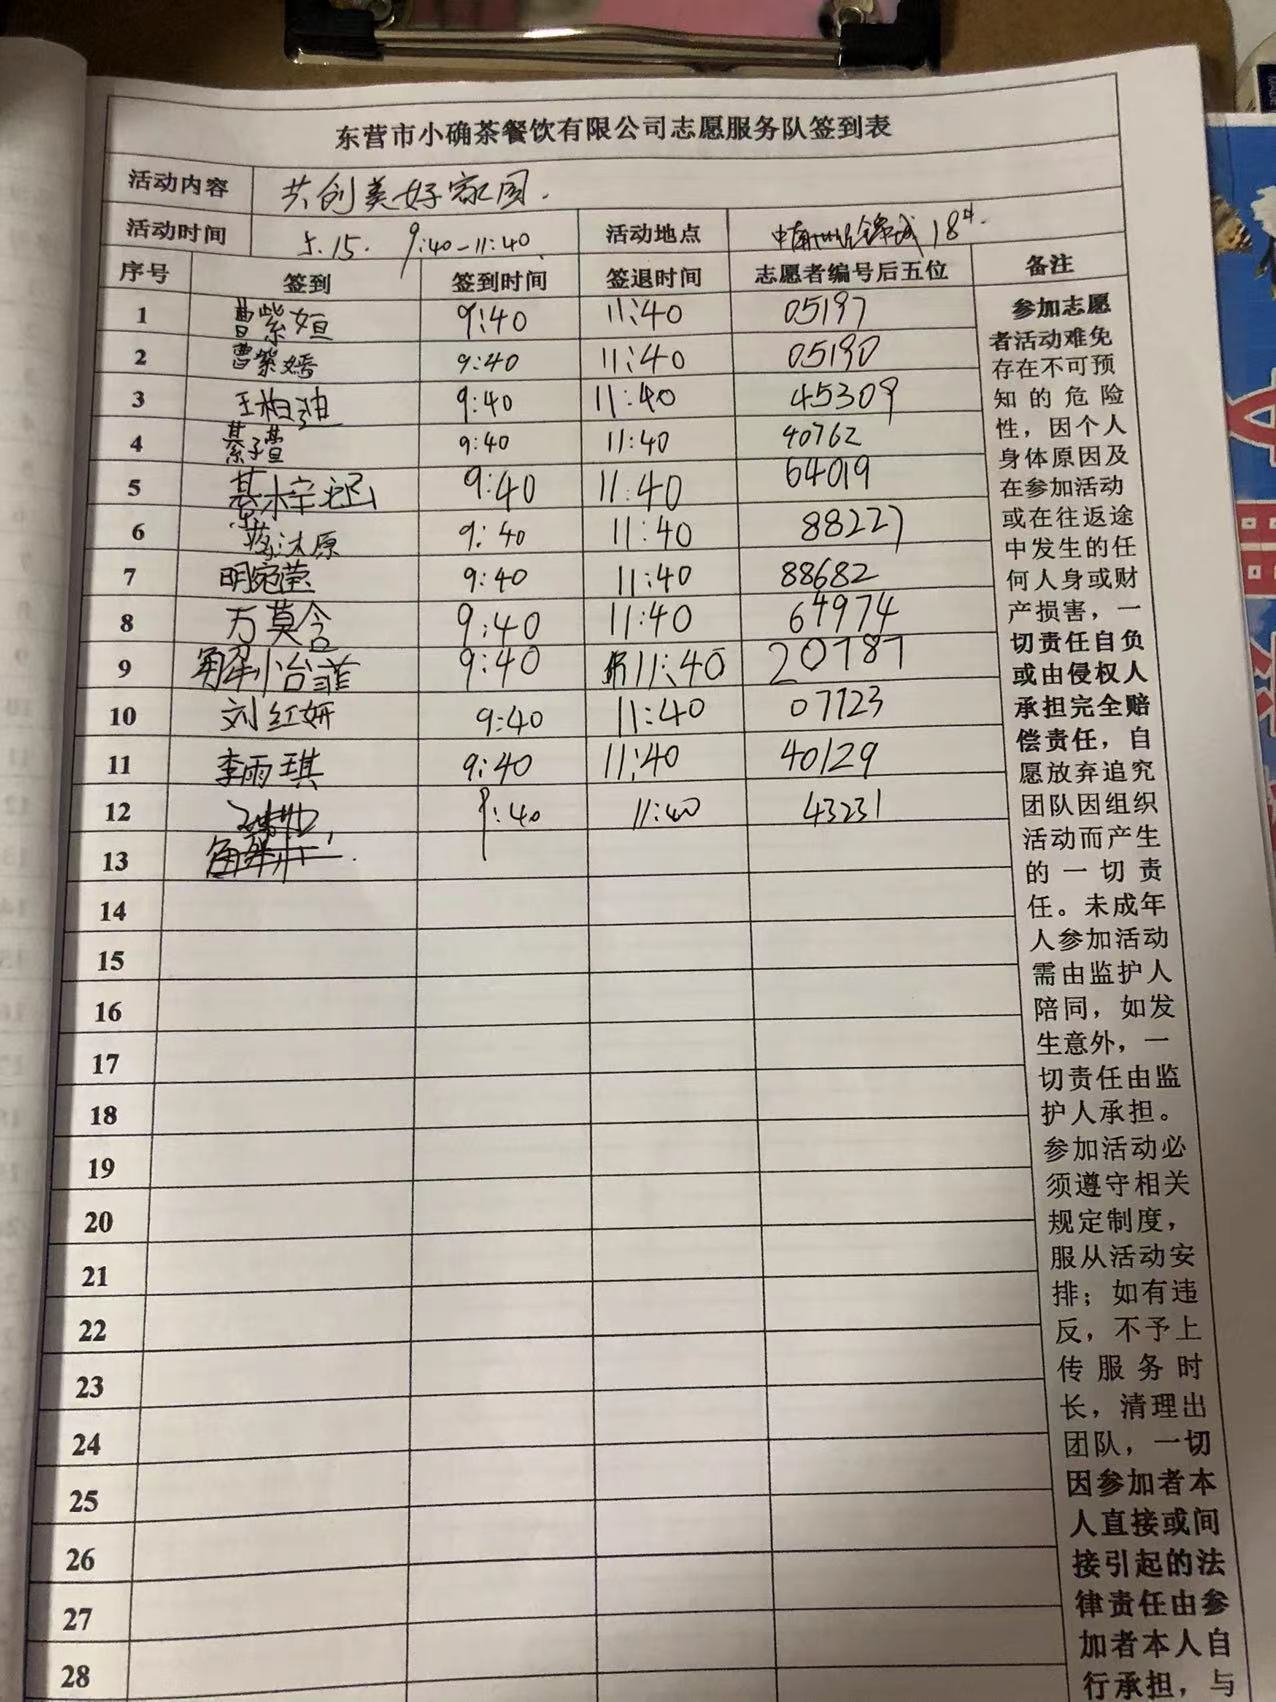 东营市小确茶餐饮有限公司志愿服务队签到表
活动内容 共创美好家园.
活动时间 5.15. 9:40-11:40 活动地点 18#.
序号 签到 签到时间 签退时间 志愿者编号后五位 备注
1 曹紫姮 9:40 11:40 05197
2 曹紫嫣 9:40 11:40 05190
3 王柏 9:40 11:40 45309
4 綦子萱 9:40 11:40 40762
5 綦梓 9:40 11:40 64019
6 沐原 9:40 11:40 88227
7 明宛莹 9:40 11:40 88682
8 万莫含 9:40 11:40 64974
9 解怡菲 9:40 11:40 20787
10 刘红妍 9:40 11:40 07123
11 李雨琪 9:40 11:40 40129
12 9:40 11:40 43231
13
14
15
16
17
18
19
20
21
22
23
24
25
26
27
28
参加志愿
者活动难免
存在不可预
知的危险
性，因个人
身体原因及
在参加活动
或在往返途
中发生的任
何人身或财
产损害，一
切责任自负
或由侵权人
承担完全赔
偿责任，自
愿放弃追究
团队因组织
活动而产生
的一切责
任。未成年
人参加活动
需由监护人
陪同，如发
生意外，一
切责任由监
护人承担。
参加活动必
须遵守相关
规定制度，
服从活动安
排；如有违
反，不予上
传服务时
长，清理出
团队，一切
因参加者本
人直接或间
接引起的法
律责任由参
加者本人自
行承担，与